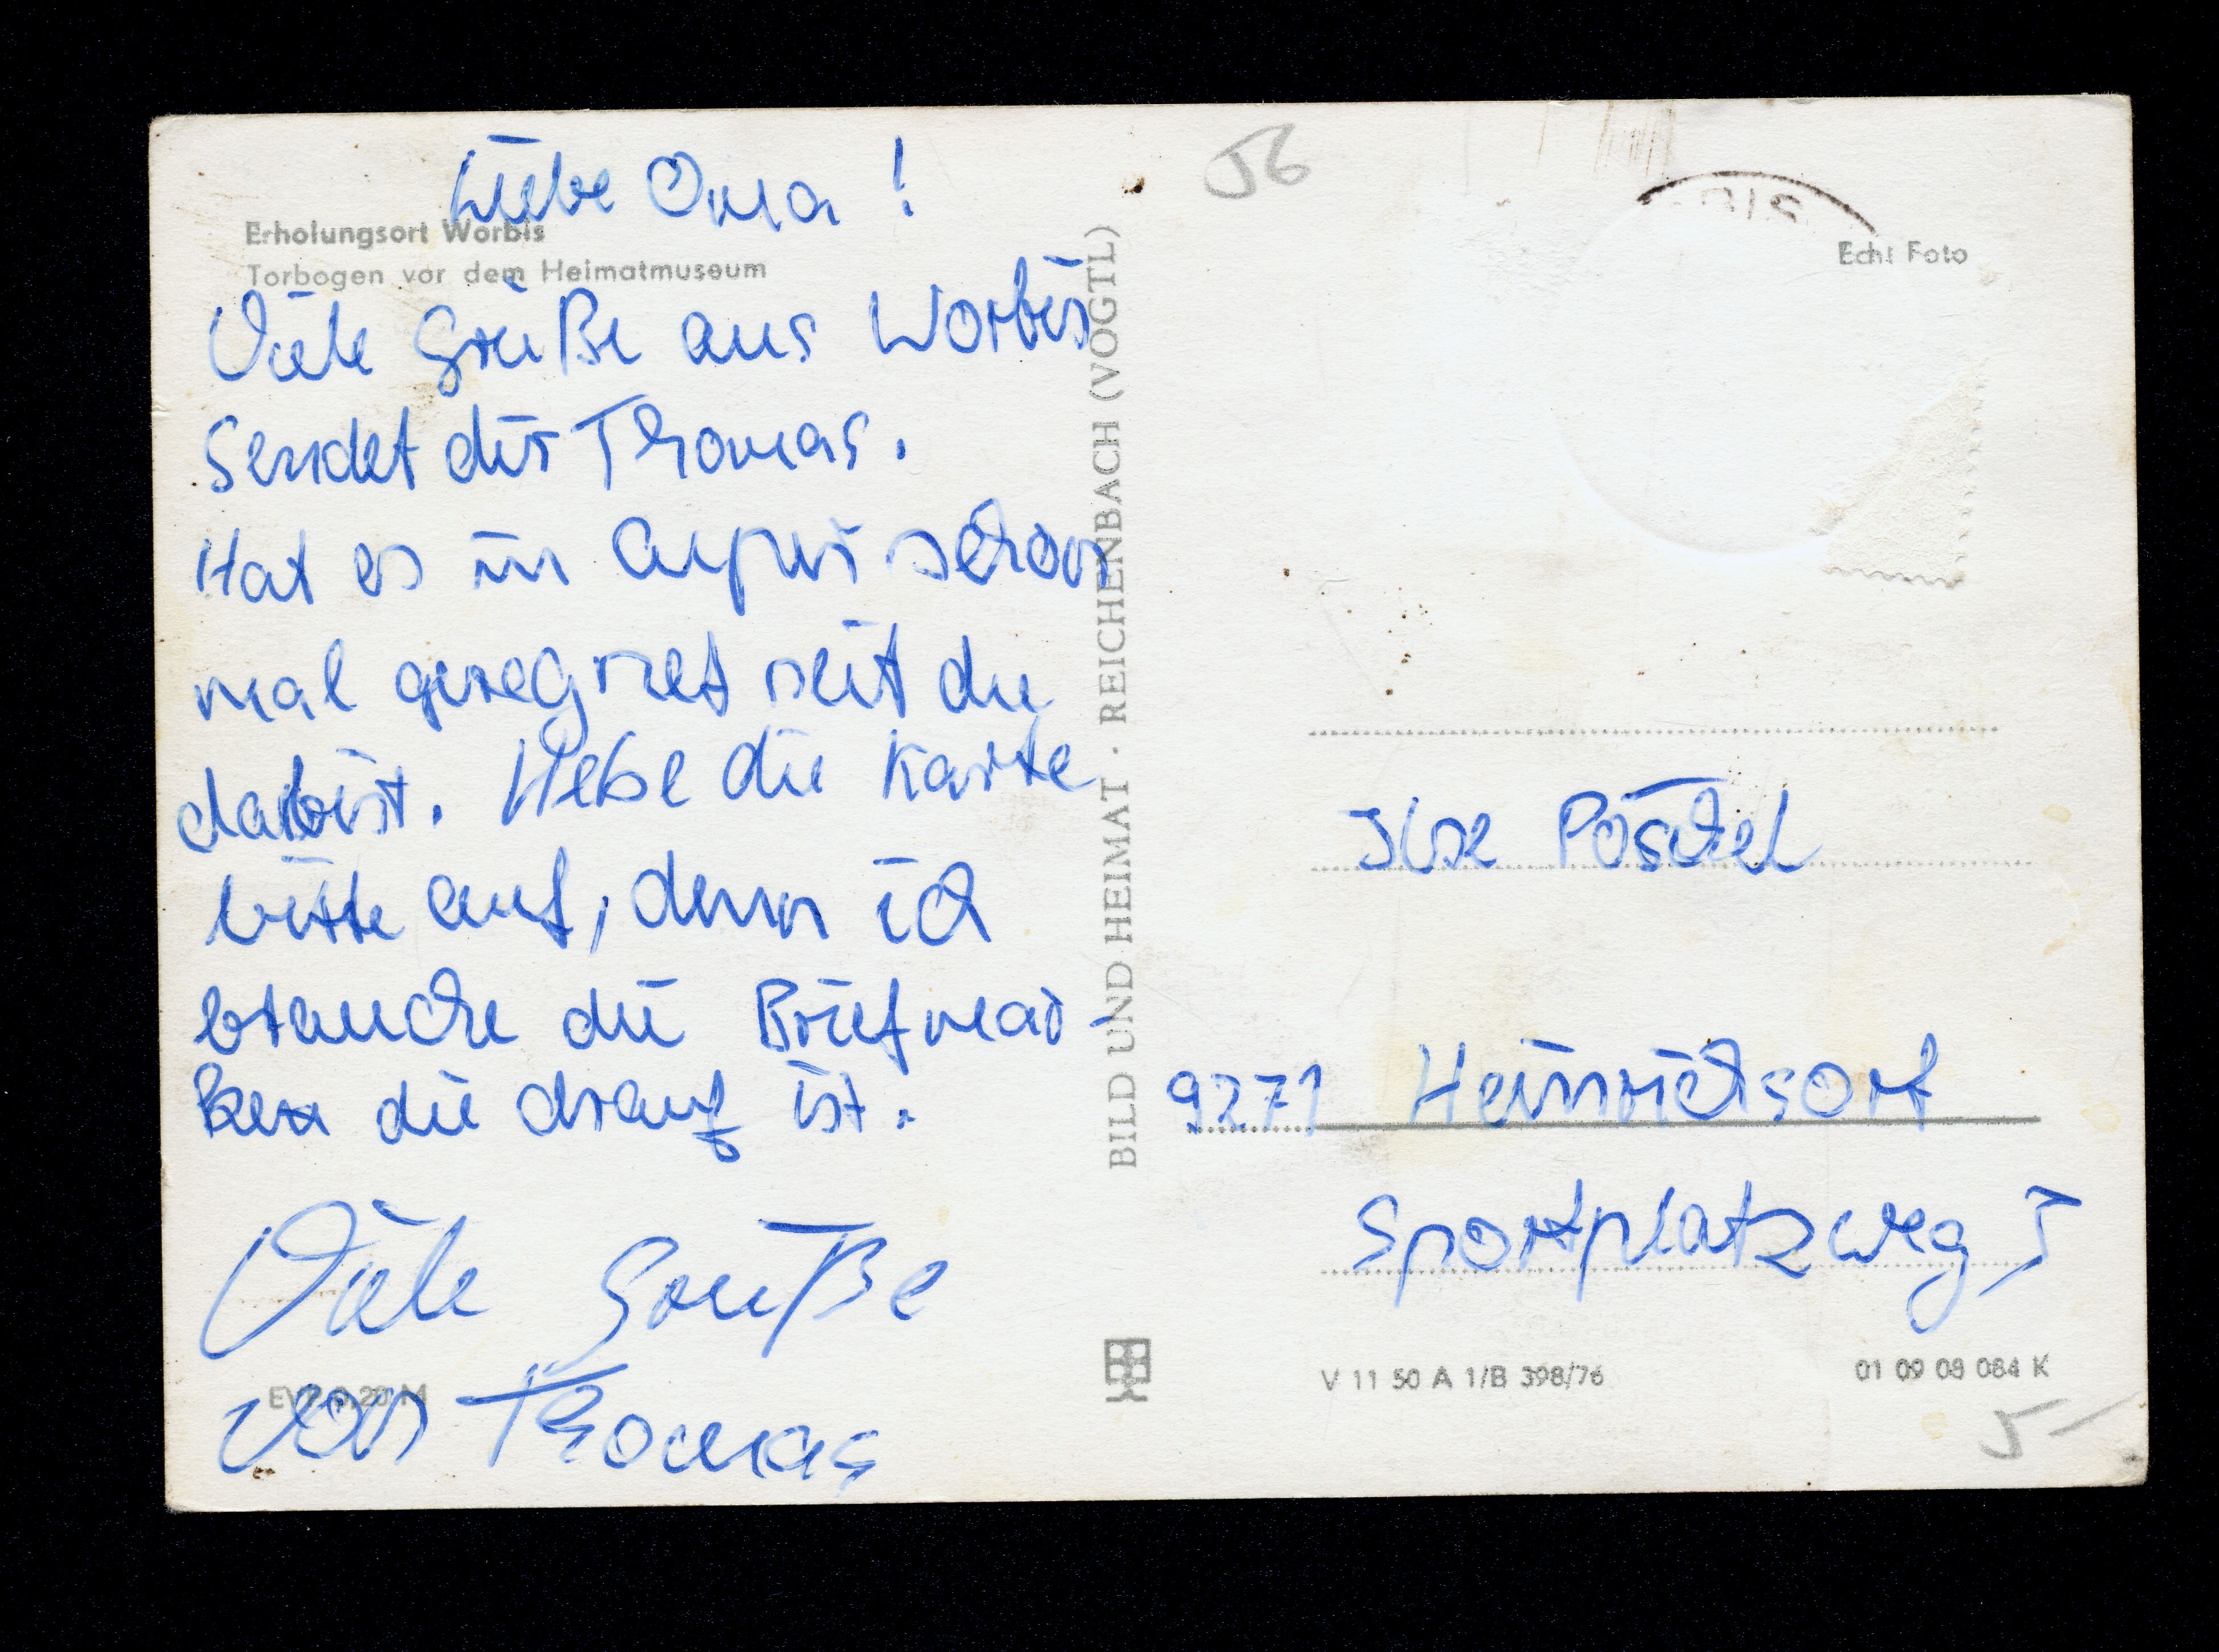 Liebe Oma!
Erholungsort Worbis
Torbogen vor dem Heimatmuseum
Viele Grüße aus Worbis
sendet dir Thomas.
Hat es in schon
mal geregnet seit du
dabist. Hebe die Karte
bitte auf, denn ich
brauche die Briefmar
ken die drauf ist.
Viele Grüße
von Thomas
EVP 0,20 M
BILD UND HEIMAT · REICHENBACH (VOGTL)
J6
BIS
Echt Foto
Ilse Pöschel
9271 Heinrichsort
Sportplatzweg 5
V 11 50 A 1/B 398/76
01 09 08 084 K
5-